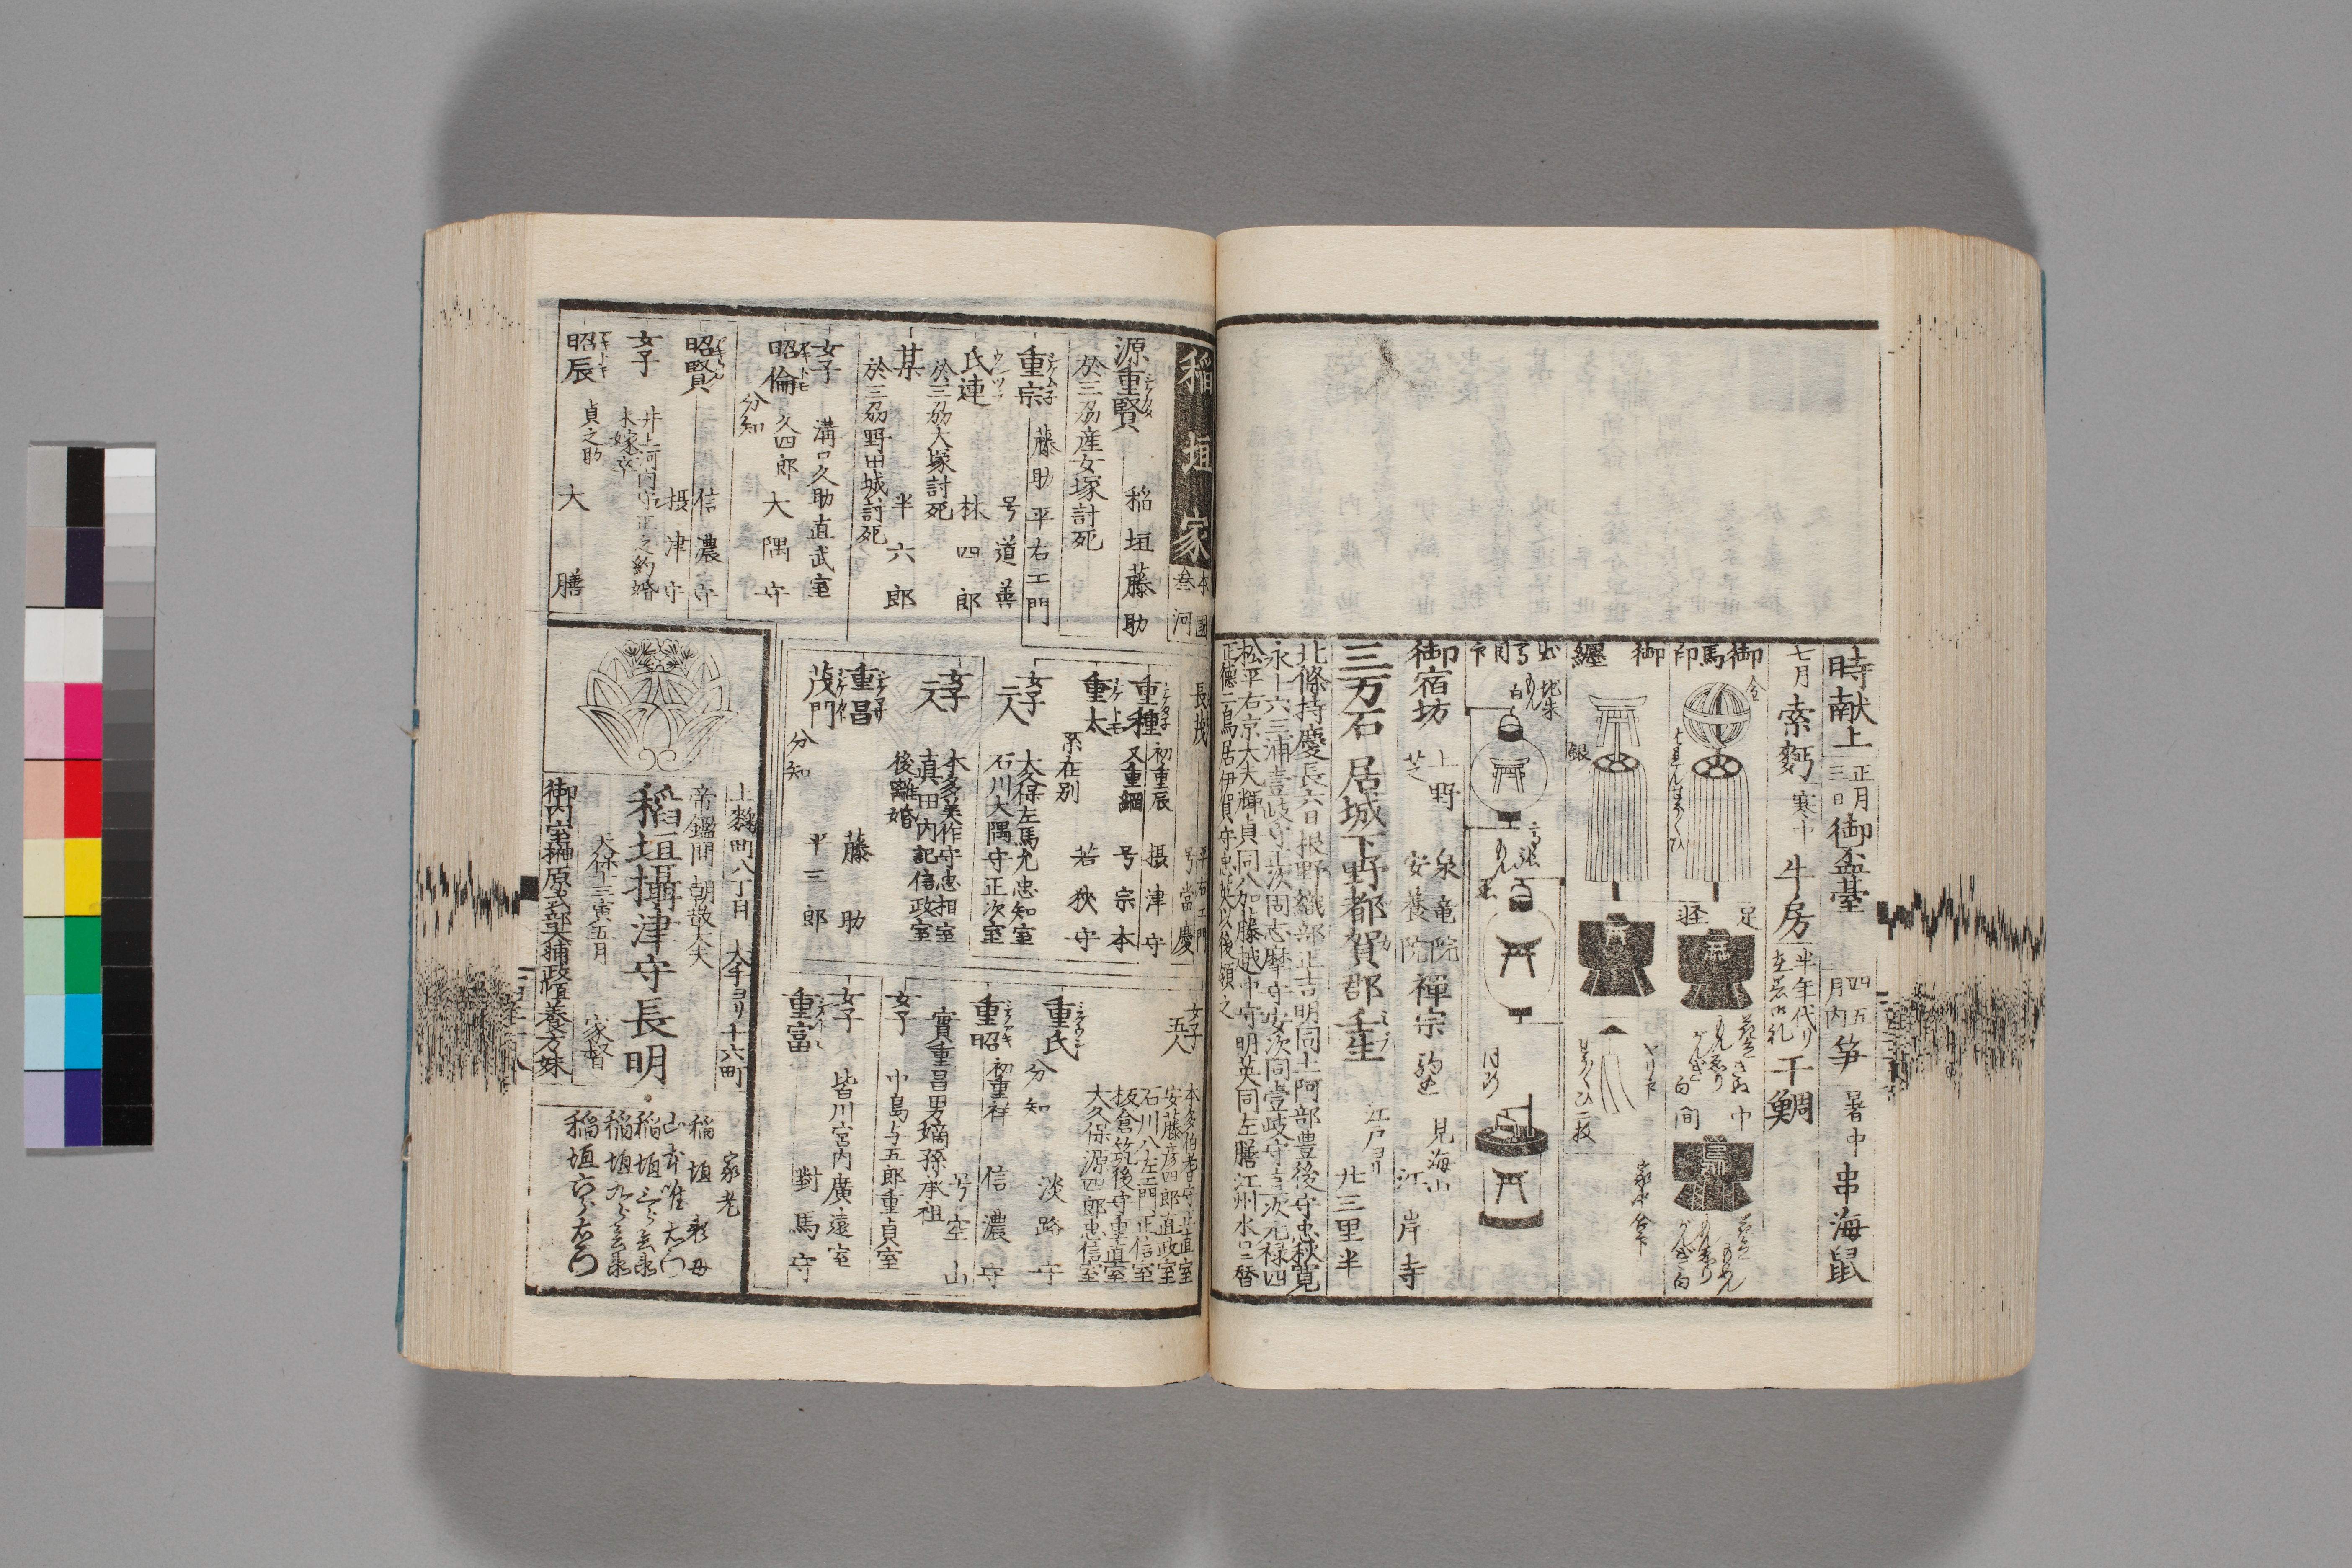 時献上
正月
三日
御盃臺
四五
月内
笋
暑中
串海鼠
七月
索麪
寒中
牛房
半年代り
在着御礼
干鯛
御馬印
金
足軽
御纏
銀
白
高張
三万石
居城下野都賀郡壬生
江戸ヨリ
廿三里半
御宿坊
上野
泉竜院
芝
安養院
禅宗
見海山
江岸寺
北條持慶長六日根野織部正吉明同十阿部豊後守忠秋寛
永十六三浦壹岐守正次同志摩守安次同壹岐守直次元禄四
松平右京大夫輝貞同八加藤越中守明英同左膳江州水口ニ替
正徳二鳥居伊賀守忠英以後領之
稲垣家
本國
叁河
源重賢
稲垣藤助
於三刕産女塚討死
重宗
藤助
平右エ門
号道善
氏連
林四郎
於三刕大塚討死
某
半六郎
於三刕野田城討死
女子
溝口久助直武室
昭倫
久四郎
大隅守
分知
昭賢
信濃守
摂津守
女子
井上河内守正之約婚
未嫁卒
昭辰
貞之助
大膳
長茂
平右エ門
号當慶
重種
初重辰
又重綱
摂津守
号宗本
重太
系在別
若狭守
女子
二人
大久保左馬允忠知室
石川大隅守正次室
女子
二人
本多美作守忠相室
真田内記信政室
後離婚
重昌
藤助
茂門
平三郎
分知
女子
五人
本多伯耆守正直室
安藤彦四郎直政室
石川八左エ門正信室
板倉筑後守重直室
大久保源四郎忠信室
重氏
分知
淡路守
重昭
初重祥
信濃守
号空山
實重昌男嫡孫承祖
女子
中島与五郎重貞室
女子
皆川宮内廣遠室
重富
對馬守
上麹町八丁目
大手ヨリ十六町
帝鑑間
朝散大夫
稲垣攝津守長明
天保十三寅五月
家督
御内室榊原式部大輔政愼養方妹
家老
稲垣
稲垣
稲垣
稲垣